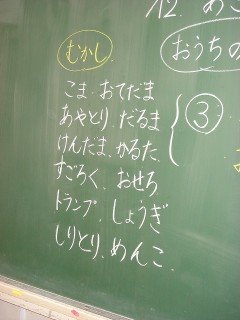 12. めこ
むかし
おうちの
こま おてだま
あやとり、だるま
けんだま、かるた、
③
すごろく、おせろ
トランプ、しょうぎ
しりとり、めんこ